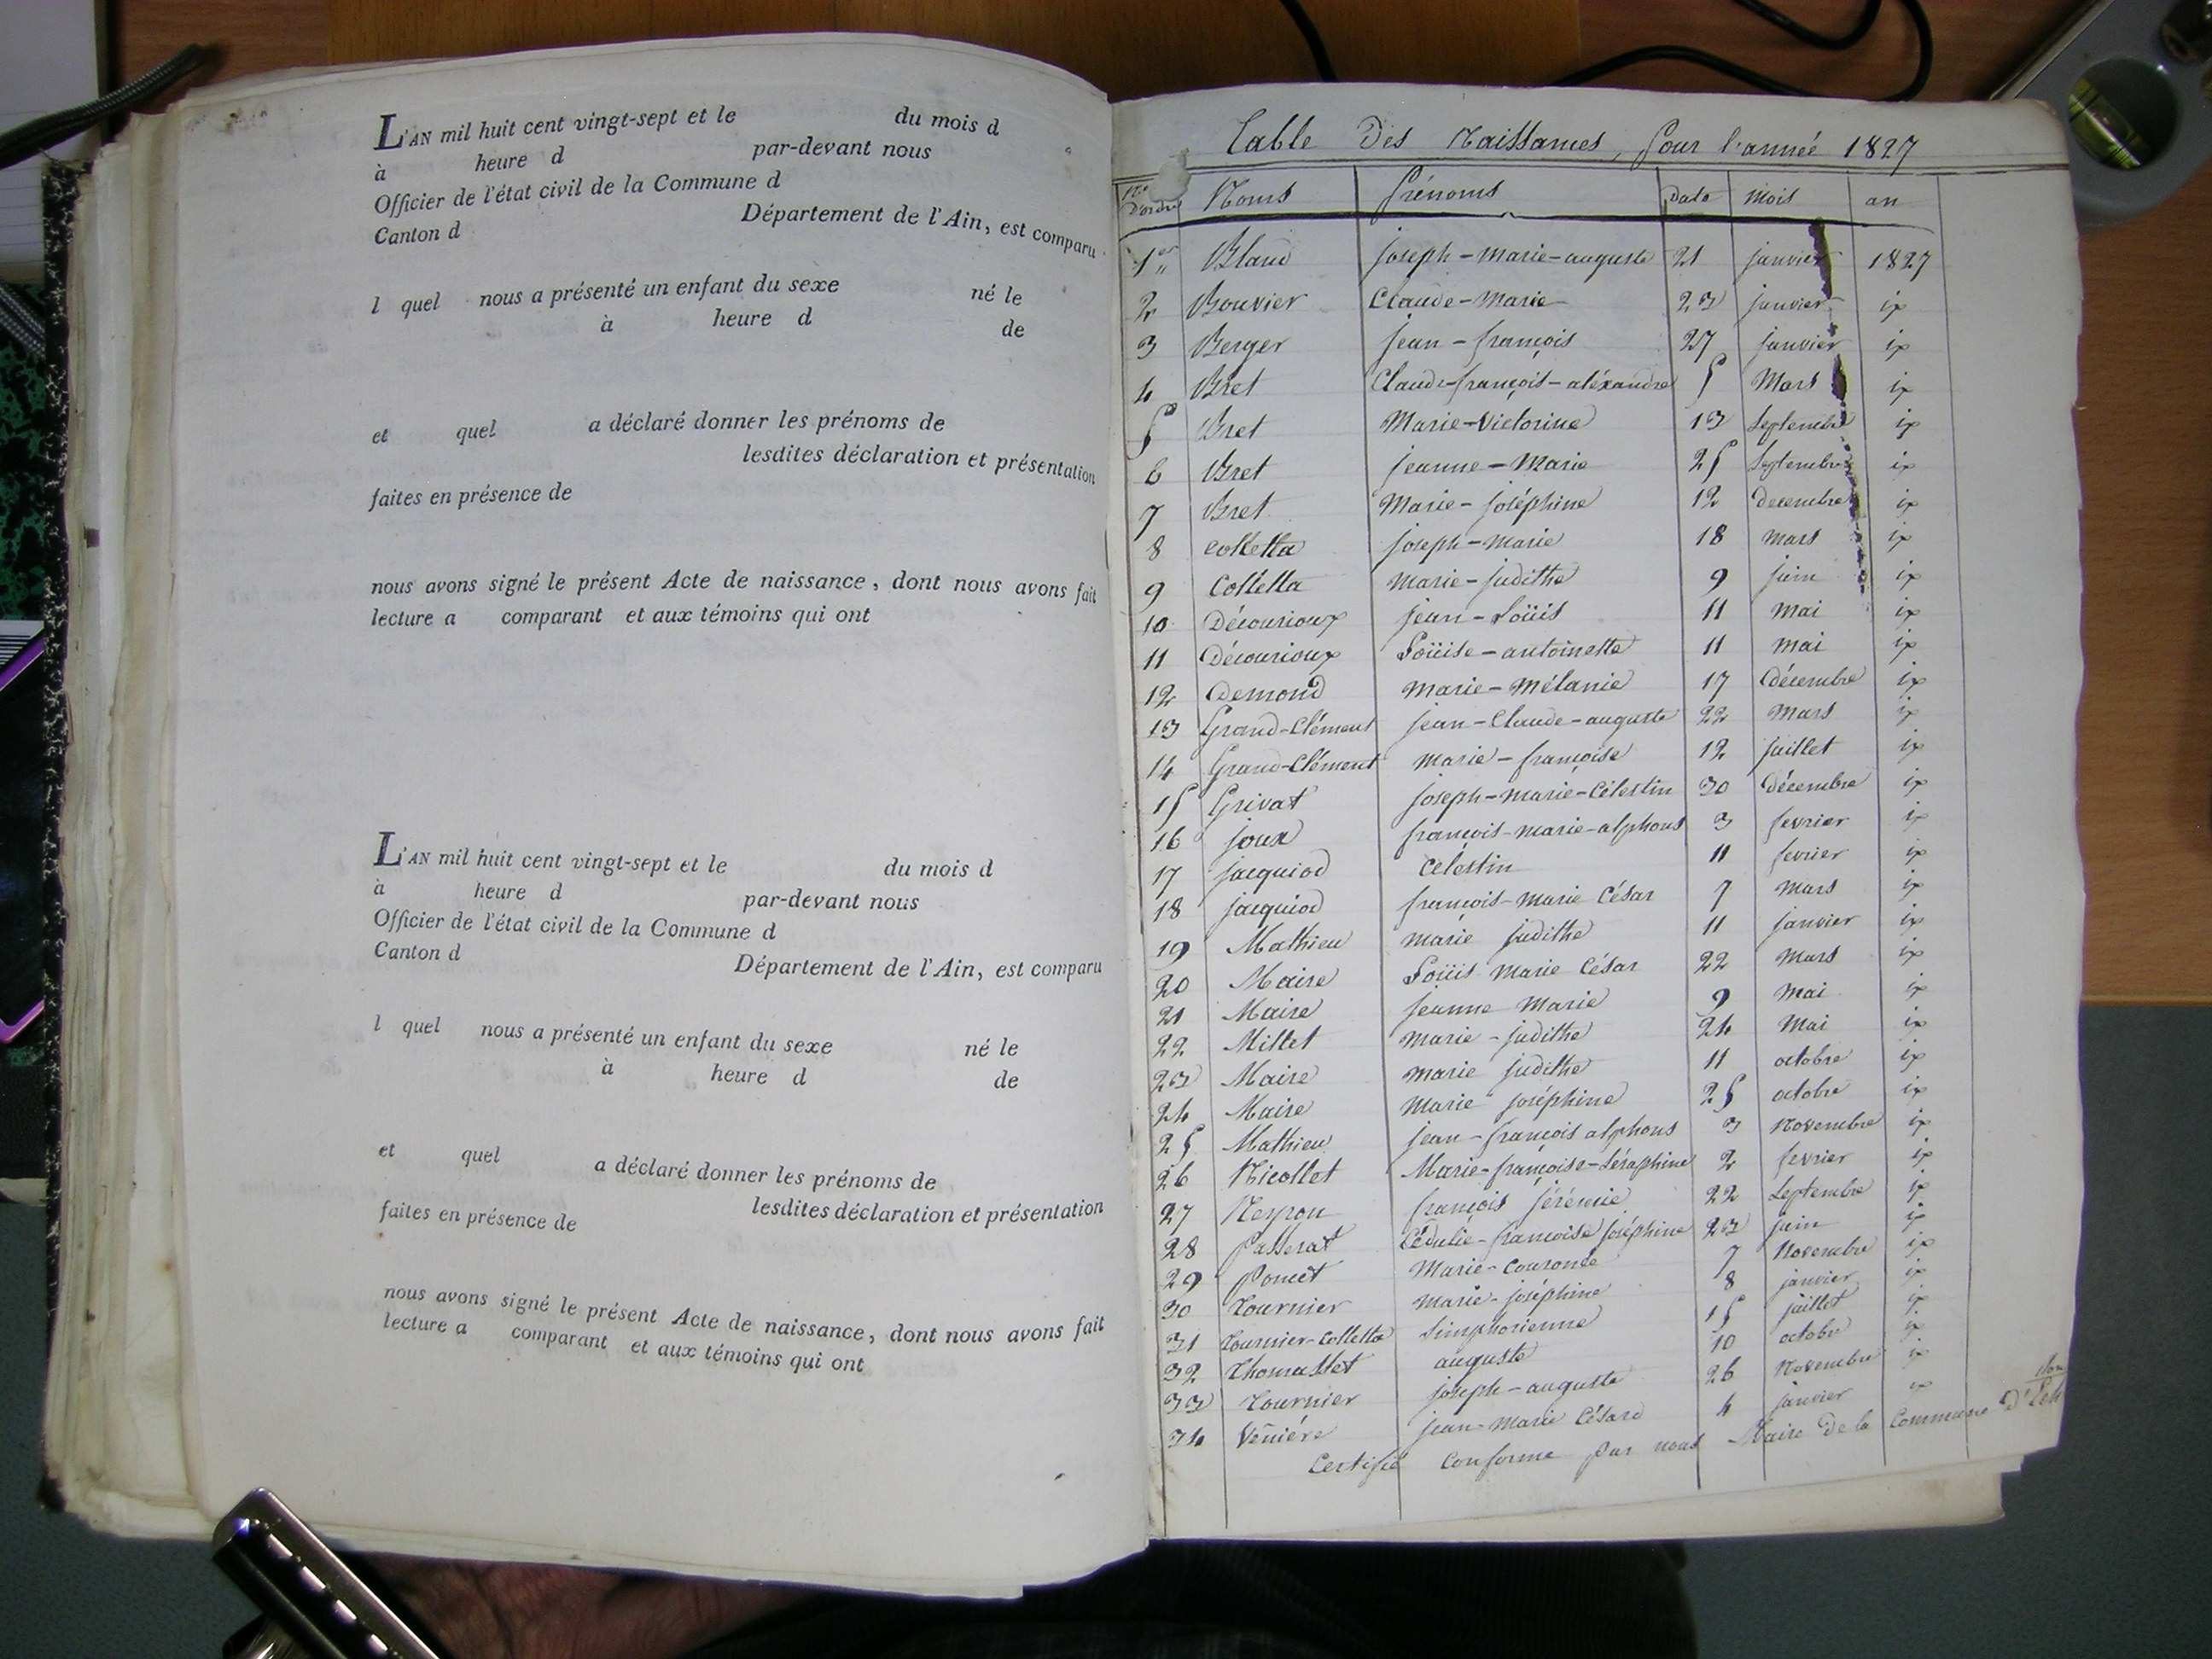 L'AN mil huit cent vingt-sept et le du mois d
à heure d par-devant nous
Officier de l'état civil de la Commune d
Canton d Département de l'Ain, est comparu
l quel nous a présenté un enfant du sexe né le
à heure d de
et quel a déclaré donner les prénoms de
lesdites déclaration et présentation
faites en présence de
nous avons signé le présent Acte de naissance, dont nous avons fait
lecture a comparant et aux témoins qui ont
L'AN mil huit cent vingt-sept et le du mois d
à heure d par-devant nous
Officier de l'état civil de la Commune d
Canton d Département de l'Ain, est comparu
l quel nous a présenté un enfant du sexe né le
à heure d de
et quel a déclaré donner les prénoms de
lesdites déclaration et présentation
faites en présence de
nous avons signé le présent Acte de naissance, dont nous avons fait
lecture a comparant et aux témoins qui ont
Table Des Naissances, pour l'année 1827
No d'ordre Noms Prénoms Date Mois an
1er Bland joseph-marie-auguste 21 janvier 1827
2 Bouvier Claude-Marie 23 janvier ix
3 Berger jean-françois 27 janvier ix
4 Bret Claude-françois-aléxandre 5 Mars ix
5 Bret Marie-Victorine 13 Septembre ix
6 Bret jeanne-Marie 25 Septembre ix
7 Bret Marie-joséphine 12 decembre ix
8 colletta joseph-marie 18 mars ix
9 Colletta marie-judithe 9 juin ix
10 Décourioux jean-Loüis 11 mai ix
11 Décourioux Loüise-antoinette 11 mai ix
12 Demond marie-mélanie 17 décembre ix
13 Grand-Clément jean-Claude-auguste 22 Mars ix
14 Grand-Clément marie-françoise 12 juillet ix
15 Grivat joseph-marie-Célestin 30 décembre ix
16 joux françois-marie-alphons 3 fevrier ix
17 jacquiod Célestin 11 fevrier ix
18 jacquiod françois-marie César 7 mars ix
19 Mathieu marie judithe 11 janvier ix
20 Maire Loüis marie César 22 Mars ix
21 Maire jeanne Marie 9 Mai ix
22 Millet marie-judithe 24 Mai ix
23 Maire marie judithe 11 octobre ix
24 Maire Marie joséphine 25 octobre ix
25 Mathieu jean-françois alphons 3 Novembre ix
26 Nicollet Marie-françoise-Séraphine 2 fevrier ix
27 Neyron françois jérémie 22 Septembre ix
28 Passerat Cédulie-françoise joséphine 23 juin ix
29 Poncet Marie-couronée 7 Novembre ix
30 Tournier marie-joséphine 8 janvier ix
31 Tournier-Colletta Simphorienne 15 juillet ix
32 Thomasset auguste 10 octobre ix
33 Tournier joseph-auguste 26 Novembre ix
34 jean-Marie Césard 4 janvier ix
Certifié Conforme par nous Maire de la Commune